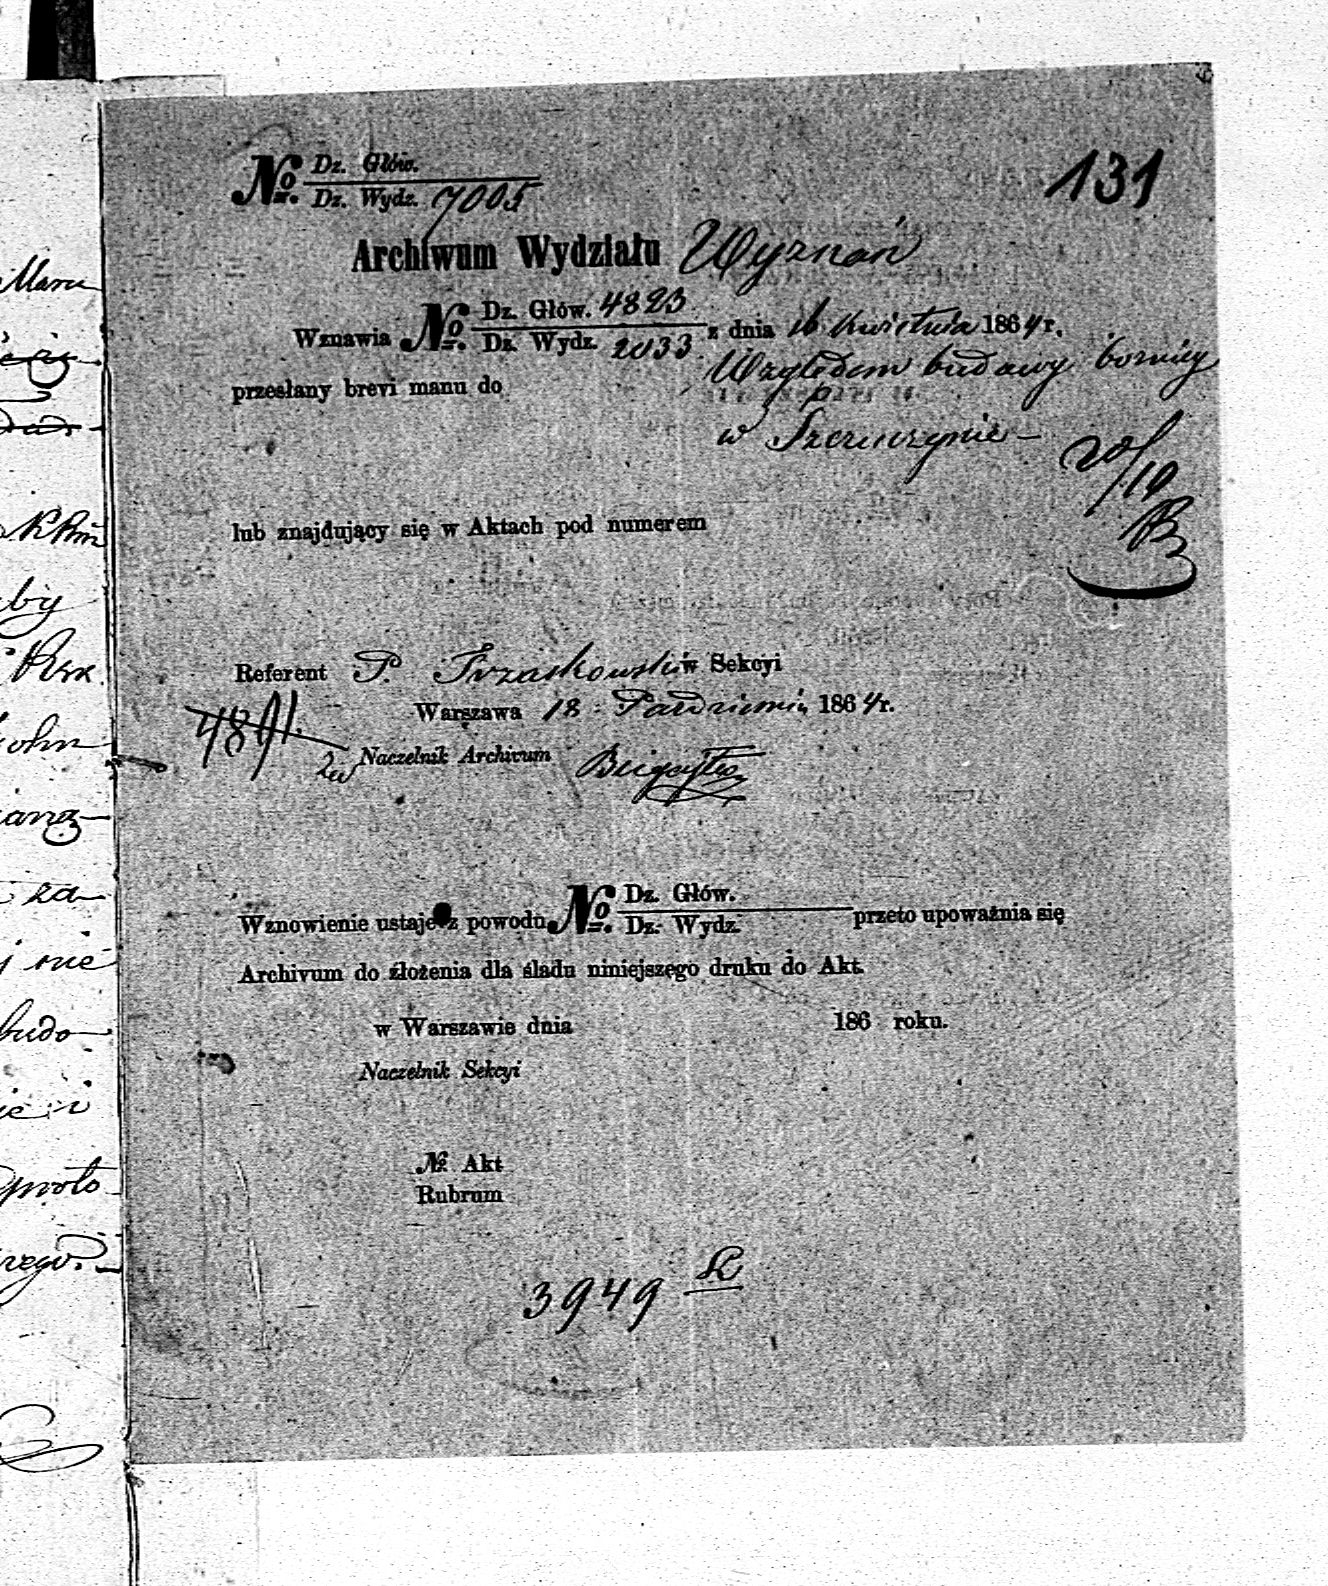 131
№ Dz. Głów.
Dz. Wydz. 7005
Archiwum Wydziału Wyznań
Wznawia № Dz. Głów. 4823
Dz. Wydz. 2033 z dnia 16 Kwietnia 1864 r.
przesłany brevi manu do Względem budowy bożnicy
w Szczuczynie
20/10
lub znajdujący się w Aktach pod numerem
Referent P. Trzaskowski w Sekcyi
Warszawa 18 Październi 1864 r.
Naczelnik Archivum
Wznowienie ustaje z powodu № Dz. Głów.
Dz. Wydz. przeto upoważnia się
Archivum do złożenia dla śladu niniejszego druku do Akt.
w Warszawie dnia 186 roku.
Naczelnik Sekcyi
№ Akt
Rubrum
3949
by
za
nie
budo